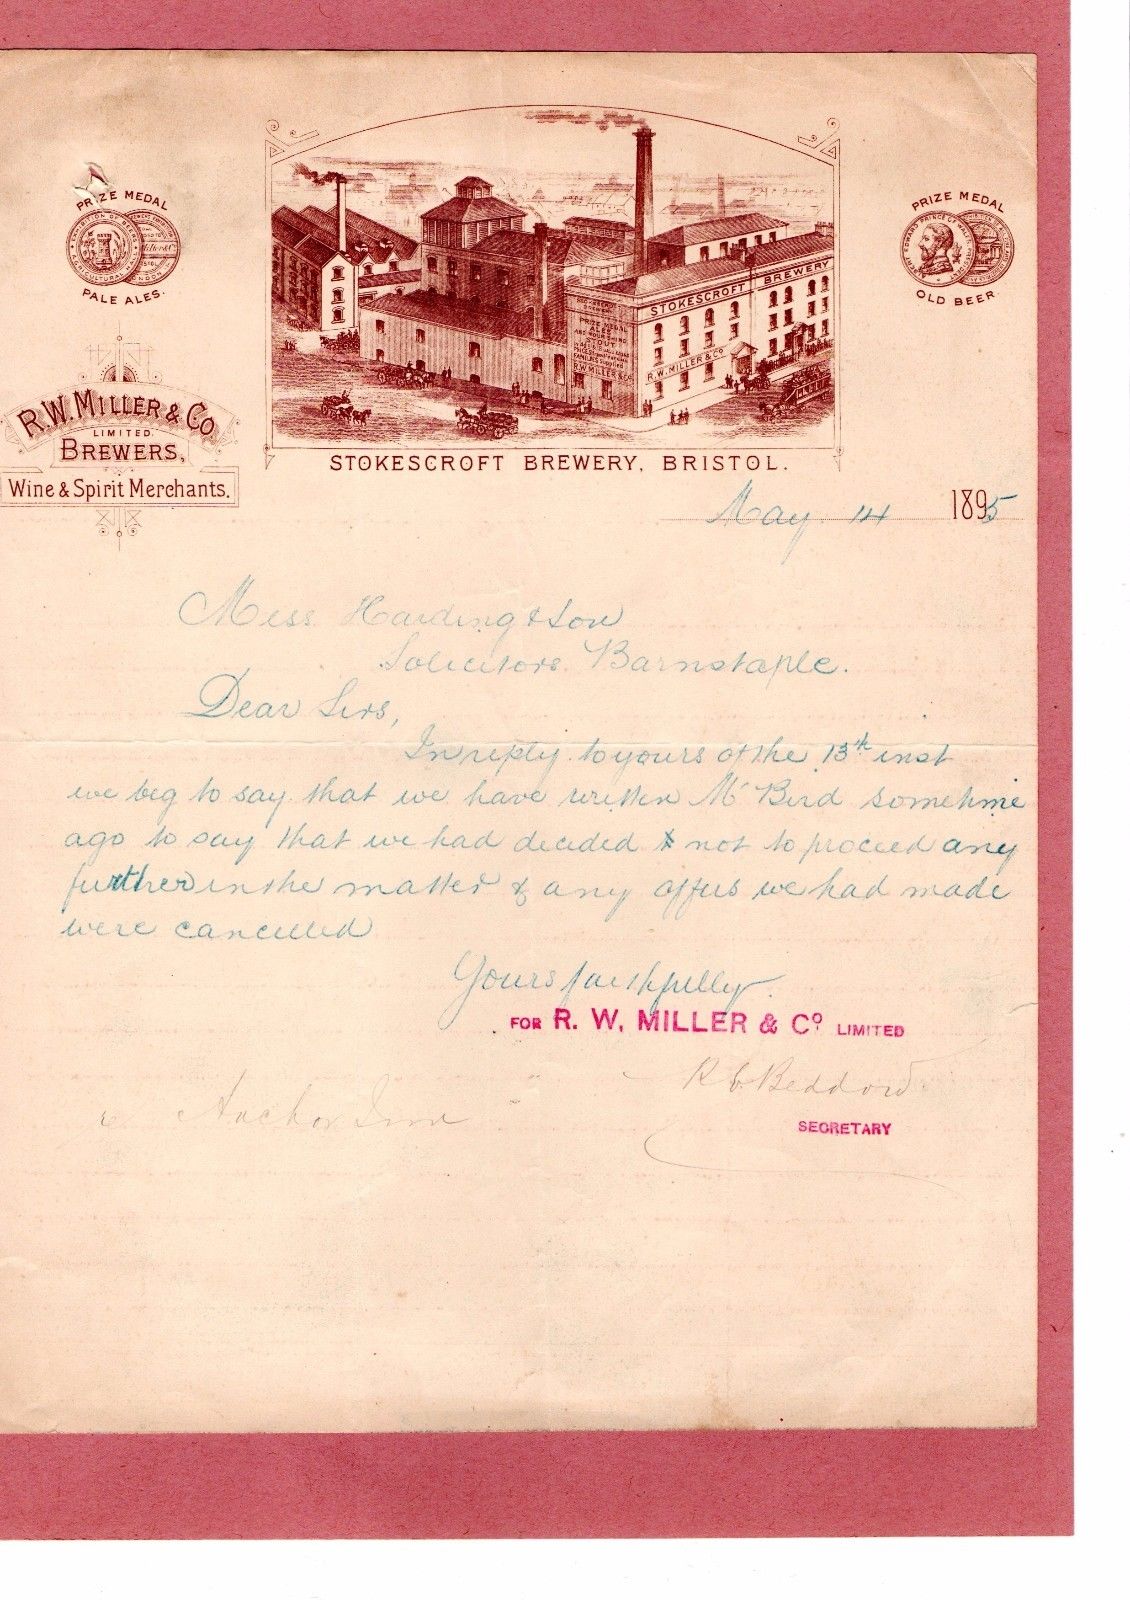 PRIZE MEDAL
PALE ALES.
PRIZE MEDAL
OLD BEER.
STOKESCROFT BREWERY
R.W. MILLER & Co
PRIZE MEDAL
R.W. MILLER & Co
R.W. MILLER & Co
LIMITED.
BREWERS,
Wine & Spirit Merchants.
STOKESCROFT BREWERY, BRISTOL.
May 14 1895
Mess Harding & Son
Solicitors Barnstaple.
Dear Sirs,
In reply to yours of the 13th inst
we beg to say that we have written Mr Bird sometime
ago to say that we had decided not to proceed any
further in the matter & any offers we had made
were cancelled
Yours faithfully
FOR R. W. MILLER & Co LIMITED
Beddow
SECRETARY
Anchor Inn